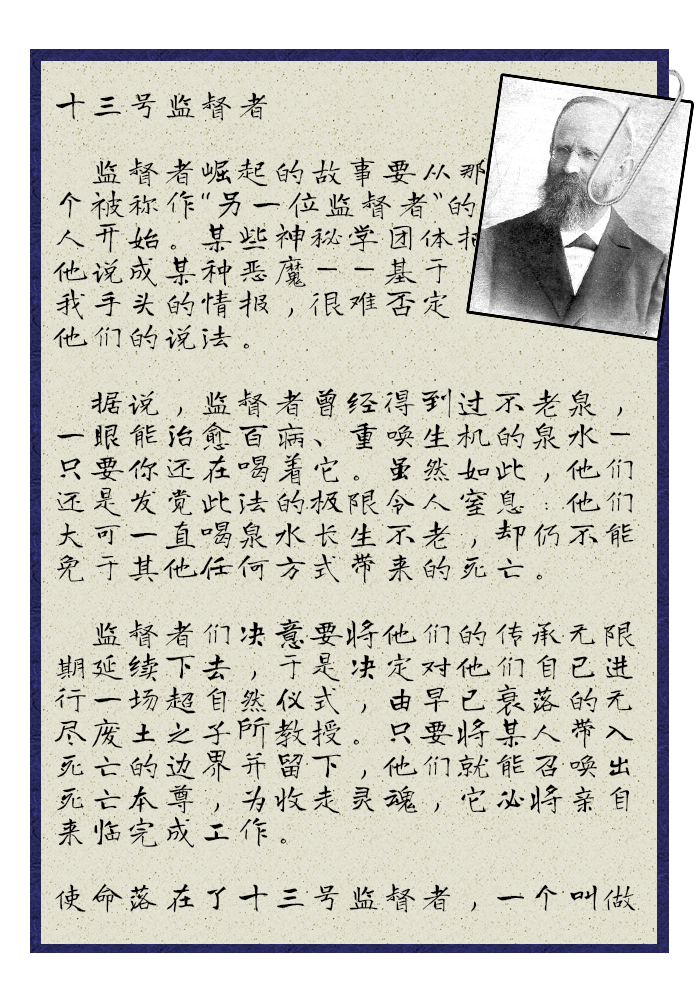 十三号监督者
监督者崛起的故事要从那
个被称作“另一位监督者”的
人开始。某些神秘学团体把
他说成某种恶魔——基于
我手头的情报，很难否定
他们的说法。
据说，监督者曾经得到过不老泉，
一眼能治愈百病、重唤生机的泉水—
只要你还在喝着它。虽然如此，他们
还是发觉此法的极限令人窒息：他们
大可一直喝泉水长生不老，却仍不能
免于其他任何方式带来的死亡。
监督者们决意要将他们的传承无限
期延续下去，于是决定对他们自己进
行一场超自然仪式，由早已衰落的无
尽废土之子所教授。只要将某人带入
死亡的边界并留下，他们就能召唤出
死亡本尊，为收走灵魂，它必将亲自
来临完成工作。
使命落在了十三号监督者，一个叫做